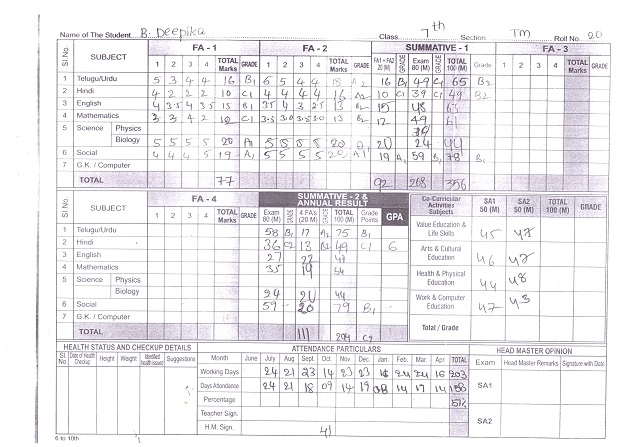 Name of The Student B. Deepika Class 7th Section TM Roll No. 20
Sl. No. SUBJECT FA - 1 FA - 2 SUMMATIVE - 1 FA - 3
1 2 3 4 TOTAL Marks GRADE 1 2 3 4 TOTAL Marks GRADE FA1 + FA2 20 (M) GRADE Exam 80 (M) GRADE TOTAL 100 (M) Grade 1 2 3 4 TOTAL Marks GRADE
1 Telugu/Urdu 5 3 4 4 16 B1 6 5 4 4 A2 16 B1 49 C1 65 B2
2 Hindi 4 2 2 2 10 C1 4 4 4 4 16 A2 10 C1 39 C1 49 B2
3 English 4 3.5 4 3.5 15 B1 3.5 4 3 2.5 13 B2 48
4 Mathematics 3 3 4 2 12 C1 3.5 3.0 3.5 3.0 13 B2 12 49 61
5 Science Physics
Biology 5 5 5 5 20 A1 5 5 5 5 20 20 24 44
6 Social 4 4 4 5 19 A1 5 5 5 5 20 A1 19 A1 59 B1 78 B1
7 G.K. / Computer
TOTAL 77 92 268 356
Sl. No. SUBJECT FA - 4 SUMMATIVE - 2 & ANNUAL RESULT
1 2 3 4 TOTAL Marks GRADE Exam 80 (M) GRADE 4 FA's (20 M) GRADE TOTAL 100 (M) Grade Points GPA
1 Telugu/Urdu 58 B1 17 A2 75 B1
2 Hindi 36 C2 13 B2 49 C1 6
3 English 27 22
4 Mathematics 35 19 54
5 Science Physics
Biology 24 20 44
6 Social 59 20 79 B1
7 G.K. / Computer
TOTAL 111 294
Co-Curricular Activities Subjects SA1 50 (M) SA2 50 (M) TOTAL 100 (M) GRADE
Value Education & Life Skills 45 47
Arts & Cultural Education 46 47
Health & Physical Education 44 48
Work & Computer Education 47 43
Total / Grade
HEALTH STATUS AND CHECKUP DETAILS ATTENDANCE PARTICULARS HEAD MASTER OPINION
Sl. No. Date of Health Checkup Height Weight Identified health issued Suggestions Month June July Aug Sept. Oct. Nov. Dec. Jan. Feb. Mar. Apr. TOTAL Exam Head Master Remarks Signature with Date
Working Days 24 21 23 14 23 23 16 24 24 16 203
Days Attendance 24 21 18 09 14 19 08 14 17 14 158
Percentage
Teacher Sign.
H.M. Sign.
SA1
SA2
6 to 10th